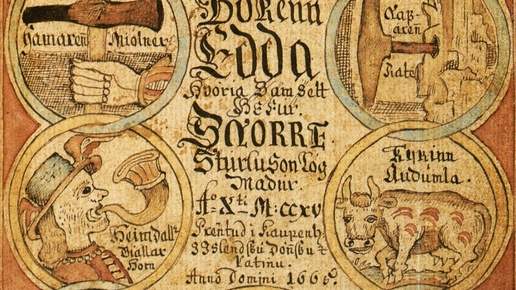 Hamaren Miolner
Bokenn
Edda
Hvoria Samsett
Hefur
SNORRE
Sturluson Løg
Madur
Ao Xti M:CCXV
Prentud i Kaupenh:
Islendsku Dønsku &
Latinu
Anno Domini 1665.
Naf-
aren
Rate
Heimdall
Giallar
Horn
Kyrinn
Audumla